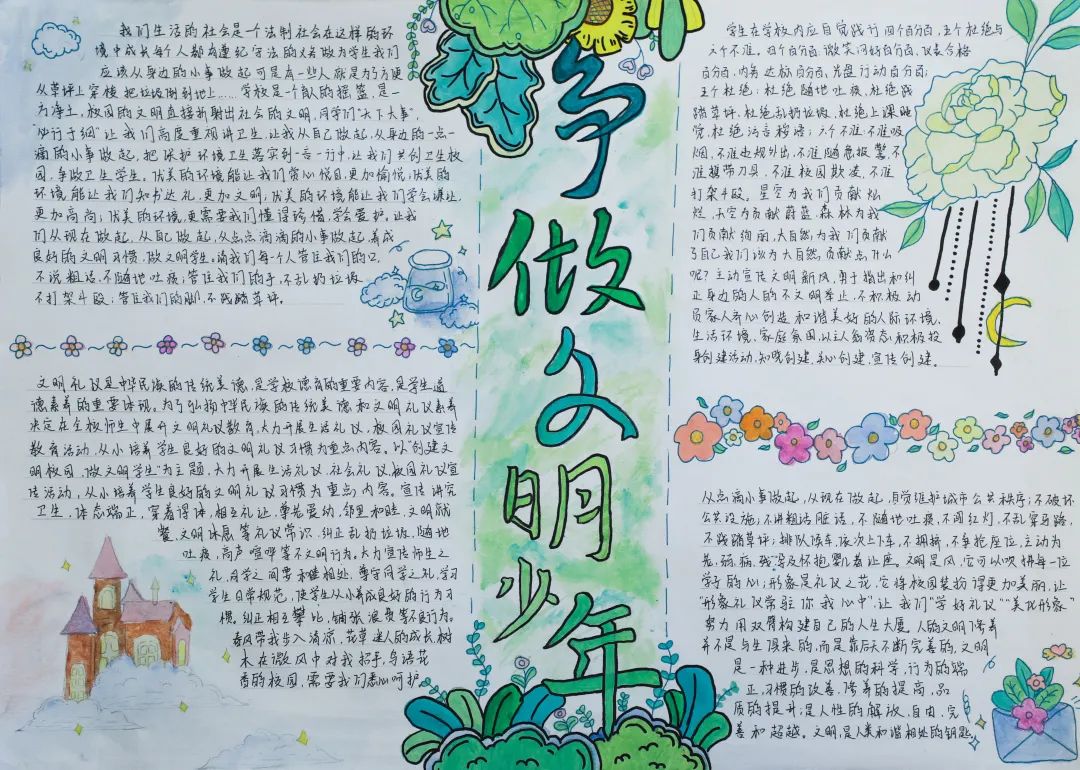 争做文明少年
我们生活的社会是一个法制社会在这样的环
境中成长每个人都有遵纪守法的义务做为学生我们
应该从身边的小事做起可是有一些人就是为了方便
从草坪上穿梭把垃圾倒到地上……学校是个育人的摇篮,是一
方净土,校园的文明直接折射出社会的文明,同学们"天下大事",
必行于细"让我们高度重视讲卫生,让我从自己做起,从身边的一点一
滴的小事做起,把保护环境卫生落实到一言一行中,让我们共创卫生校
园,争做卫生学生。优美的环境能让我们赏心悦目,更加愉悦;优美的
环境能让我们知书达礼,更加文明;优美的环境能让我们学会谦让,
更加高尚;优美的环境,更需要我们懂得珍惜,学会爱护,让我
们从现在做起,从自己做起,从点点滴滴的小事做起,养成
良好的文明习惯,做文明学生。请我们每个人管住我们的口,
不说粗话,不随地吐痰;管住我们的手,不乱扔垃圾
不打架斗殴;管住我们的脚,不践踏草坪。
文明礼仪是中华民族的传统美德,是学校德育的重要内容,是学生道
德素养的重要体现。为了弘扬中华民族的传统美德和文明礼仪素养
决定在全校师生中展开文明礼仪教育,大力开展生活礼仪,校园礼仪宣传
教育活动,从小培养学生良好的文明礼仪习惯为重点内容。以"创建文
明校园,做文明学生"为主题,大力开展生活礼仪,社会礼仪,校园礼仪宣
传活动,从小培养学生良好的文明礼仪习惯为重点内容。宣传讲究
卫生,体态端正,穿着得体,相互礼让,尊老爱幼,邻里和睦,文明就
餐,文明休息等礼仪常识,纠正乱扔垃圾,随地
吐痰,高声喧哗等不文明行为,大力宣传师生之
礼,同学之间要和睦相处,尊守同学之礼,学习
学生日常规范,使学生从小养成良好的行为习
惯,纠正相互攀比,铺张浪费等不良行为。
春风带我步入清凉,花草迷人的成长,树
木在微风中对我招手,鸟语花
香的校园,需要我们悉心呵护
学生在学校内应自觉践行四个百分百,五个杜绝与
六个不准。四个百分百:微笑问好百分百,仪表合格
百分百,内务达标百分百,光盘行动百分百;
五个杜绝:杜绝随地吐痰,杜绝践
踏草坪,杜绝乱扔垃圾,杜绝上课睡
觉,杜绝污言秽语;六个不准:不准吸
烟,不准违规外出,不准随意报警,不
准携带刀具,不准校园欺凌,不准
打架斗殴。星空为我们贡献灿
烂,天空为贡献蔚蓝,森林为我
们贡献绚丽,大自然为我们贡献
了自己我们该为大自然贡献点什么
呢?主动宣传文明新风,勇于指出和纠
正身边的人的不文明举止,不积极动
员家人齐心创造和谐美好的人际环境、
生活环境、家庭氛围,以主人翁姿态积极投
身创建活动,知晓创建,关心创建,宣传创建。
从点滴小事做起,从现在做起,自觉维护城市公共秩序;不破坏
公共设施;不讲粗话脏话,不随地吐痰,不闯红灯,不乱穿马路,
不践踏草坪;排队候车,依次上下车,不拥挤,不争抢座位,主动为
老、弱、病、残、孕及怀抱婴儿者让座。文明是风,它可以吹拂每一位
学子的心;形象是礼仪之花,它将校园装扮得更加美丽,让
"形象礼仪常驻你我心中",让我们"学好礼仪""美化形象"
努力用双臂构建自己的人生大厦。人的文明修养
并不是与生俱来的,而是靠后天不断完善的,文明
是一种进步,是思想的科学,行为的端
正,习惯的改善,修养的提高,品
质的提升;是人性的解放、自由、完
善和超越。文明,是人类和谐相处的钥匙